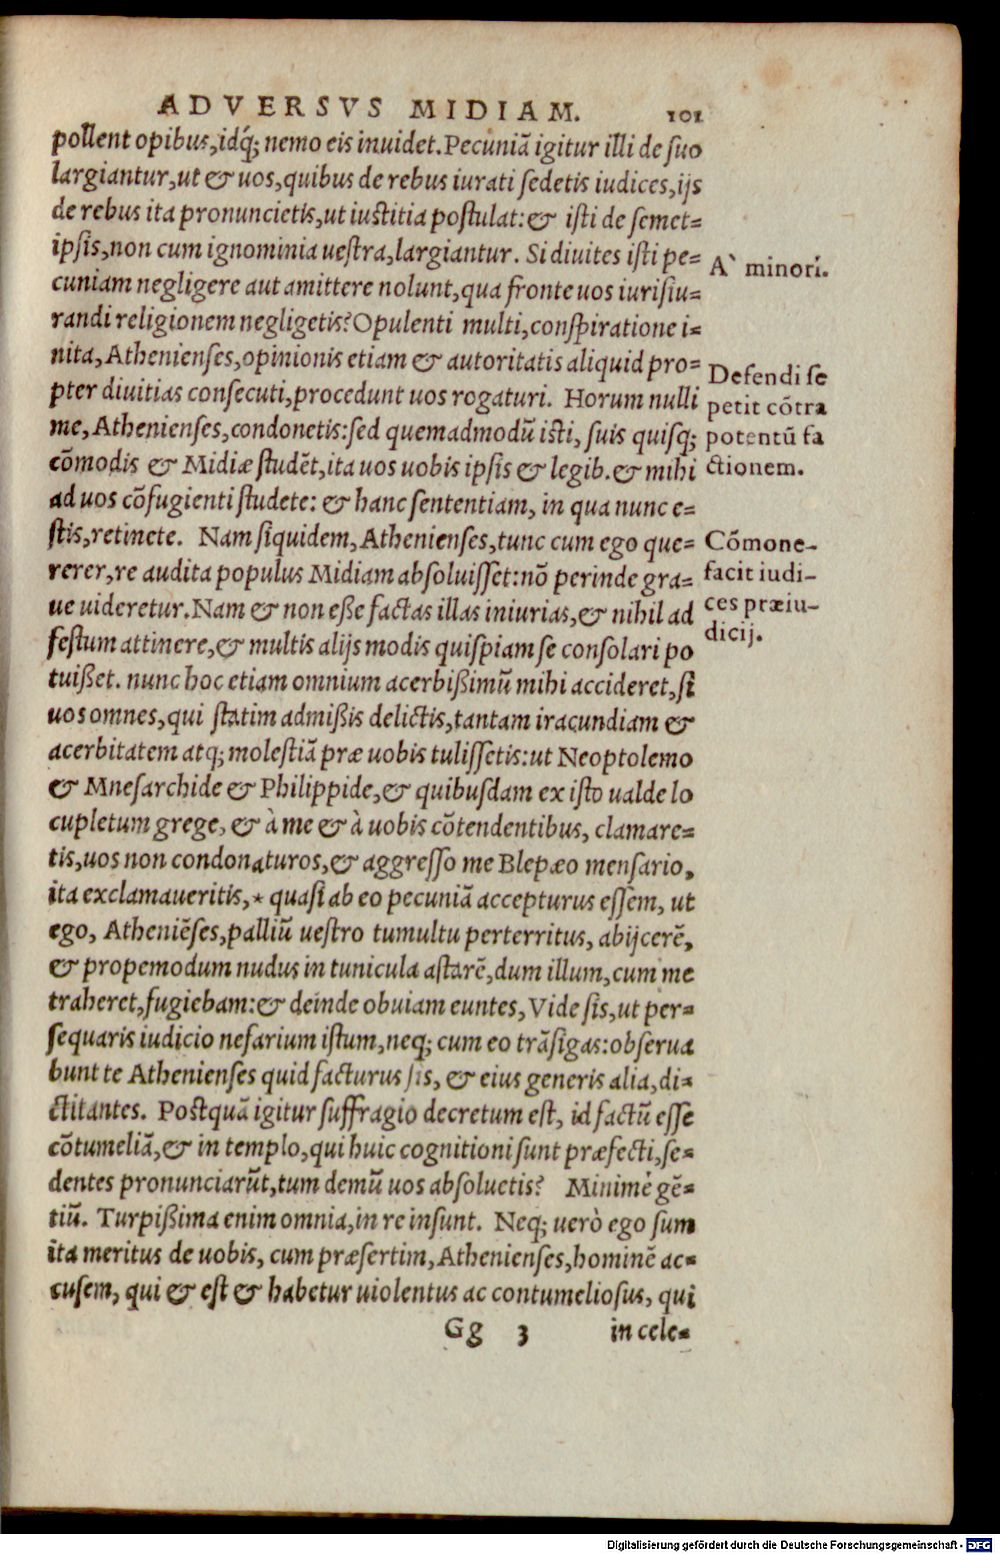 ADVERSVS MIDIAM. 101
pollent opibus, idq́; nemo eis inuidet. Pecuniā igitur illi de suo
largiantur, ut & uos, quibus de rebus iurati sedetis iudices, ijs
de rebus ita pronuncietis, ut iustitia postulat: & isti de semet=
ipsis, non cum ignominia uestra, largiantur. Si diuites isti pe=
A` minori.
cuniam negligere aut amittere nolunt, qua fronte uos iurisiu=
randi religionem negligetis? Opulenti multi, conspiratione i=
nita, Athenienses, opinionis etiam & autoritatis aliquid pro=
pter diuitias consecuti, procedunt uos rogaturi. Horum nulli
me, Athenienses, condonetis: sed quemadmodū isti, suis quisq;
cōmodis & Midiæ studēt, ita uos uobis ipsis & legib. & mihi
Defendi se
petit cōtra
potentū fa
ctionem.
ad uos cōfugienti studete: & hanc sententiam, in qua nunc e=
stis, retinete. Nam siquidem, Athenienses, tunc cum ego que=
rerer, re audita populus Midiam absoluisset: nō perinde gra=
ue uideretur. Nam & non eße factas illas iniurias, & nihil ad
festum attinere, & multis alijs modis quispiam se consolari po
Cōmone-
facit iudi-
ces præiu-
dicij.
tuißet. nunc hoc etiam omnium acerbißimū mihi accideret, si
uos omnes, qui statim admißis delictis, tantam iracundiam &
acerbitatem atq; molestiā præ uobis tulissetis: ut Neoptolemo
& Mnesarchide & Philippide, & quibusdam ex isto ualde lo
cupletum grege, & à me & à uobis cōtendentibus, clamare=
tis, uos non condonaturos, & aggresso me Blepæo mensario,
ita exclamaueritis, * quasi ab eo pecuniā accepturus essem, ut
ego, Atheniēses, palliū uestro tumultu perterritus, abijcerē,
& propemodum nudus in tunicula astarē, dum illum, cum me
traheret, fugiebam: & deinde obuiam euntes, Vide sis, ut per=
sequaris iudicio nefarium istum, neq; cum eo trāsigas: obserua
bunt te Athenienses quid facturus sis, & eius generis alia, di=
ctitantes. Postquā igitur suffragio decretum est, id factū esse
cōtumeliā, & in templo, qui huic cognitioni sunt præfecti, se=
dentes pronunciarūt, tum demū uos absoluetis? Minimè gē=
tiū. Turpißima enim omnia, in re insunt. Neq; uerò ego sum
ita meritus de uobis, cum præsertim, Athenienses, hominē ac=
cusem, qui & est & habetur uiolentus ac contumeliosus, qui
Gg 3 in cele=
Digitalisierung gefördert durch die Deutsche Forschungsgemeinschaft - DFG